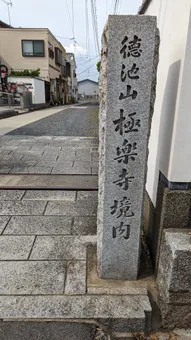 徳池山極楽寺境内